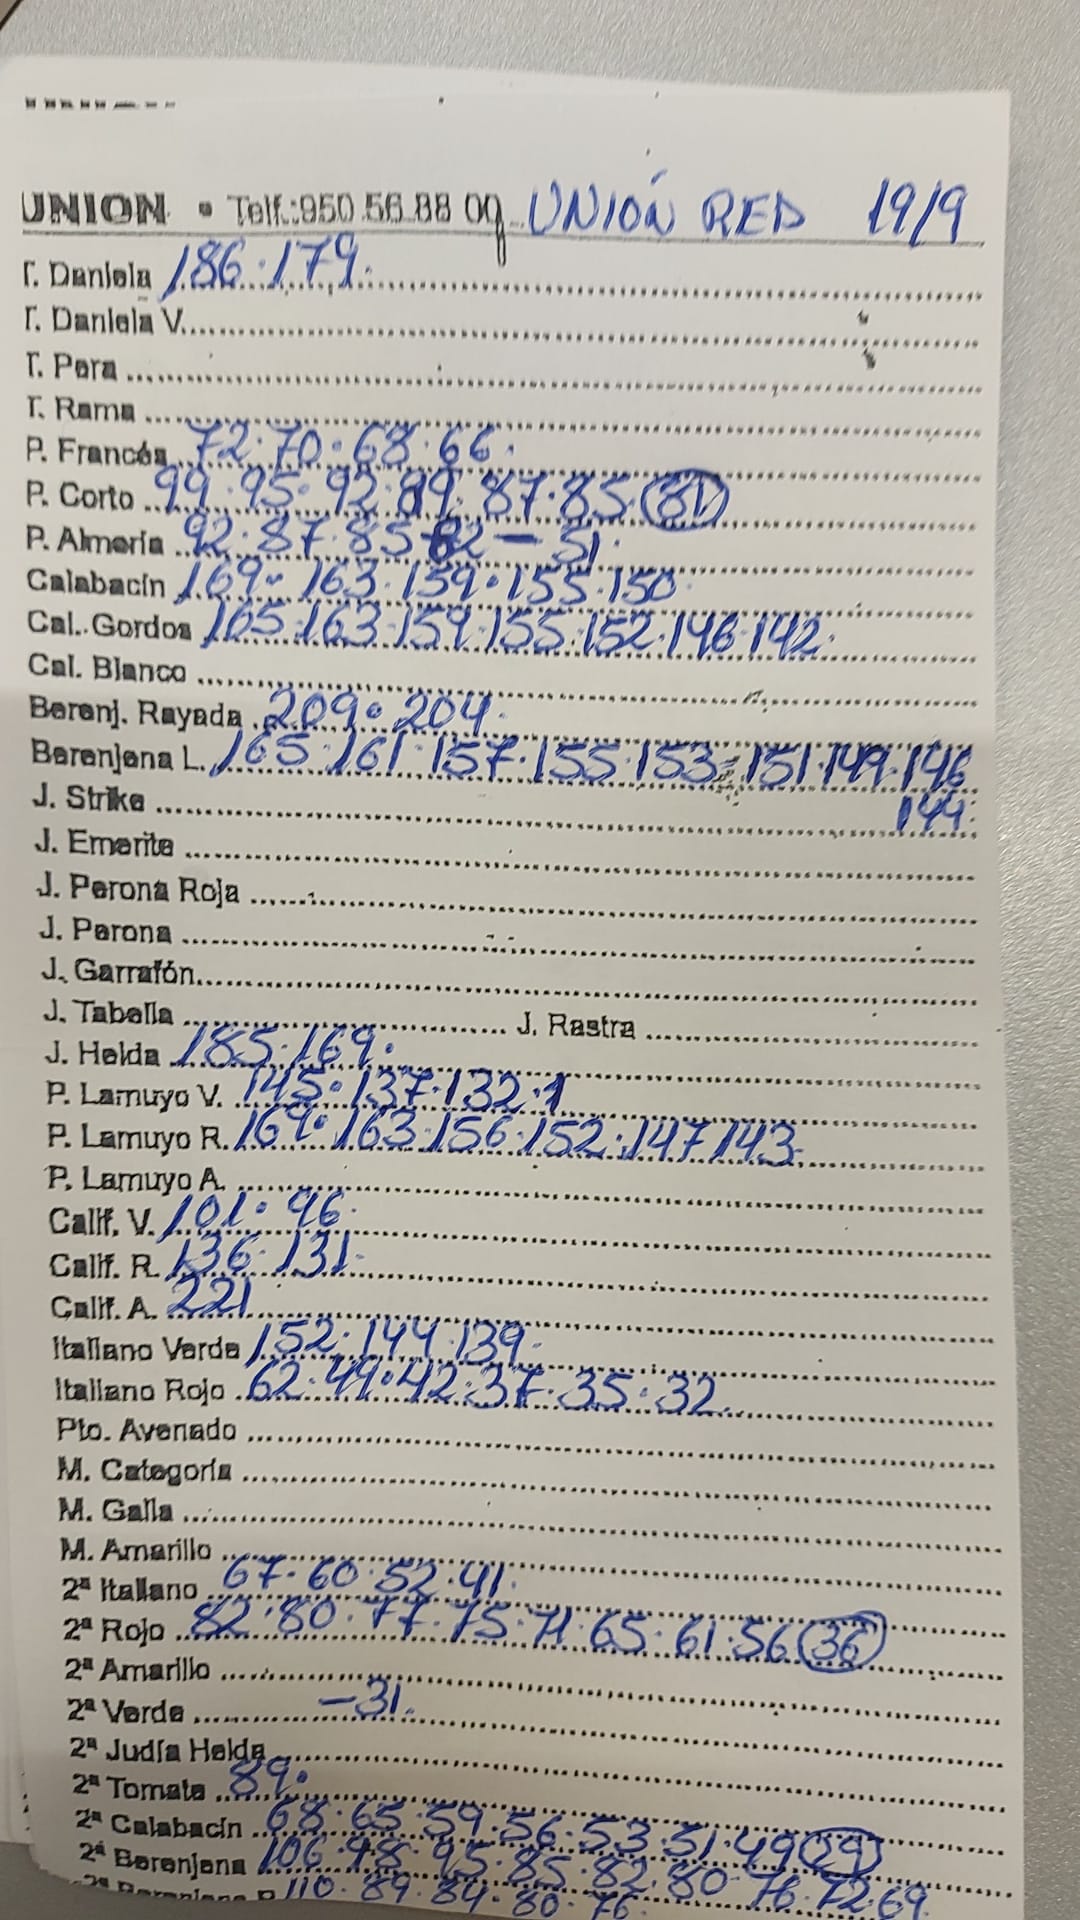 UNION • Telf.:950.56.88 09 UNIÓN RED 19/9
T. Daniela 186.179.
T. Daniela V.
T. Pera
T. Rama
P. Francés 72.70.68.66.
P. Corto 99.95.92.89.87.85.(81)
P. Almería 92.87.85-82-51.
Calabacín 169.163.159.155.150
Cal. Gordos 165.163.159.155.152.146.142.
Cal. Blanco
Berenj. Rayada 209.204.
Berenjena L. 165.161.157.155.153=151.149.146
144.
J. Strike
J. Emerite
J. Perona Roja
J. Perona
J. Garrafón
J. Tabella J. Rastra
J. Helda 185.169.
P. Lamuyo V. 145.137.132.
P. Lamuyo R. 169.163.156.152.147.143.
P. Lamuyo A.
Calif. V. 101.96.
Calif. R. 136.131.
Calif. A. 221
Italiano Verde 152.144.139.
Italiano Rojo 62.49.42.37.35.32.
Pto. Avenado
M. Categoría
M. Galla
M. Amarillo
2ª Italiano 67.60.52.41.
2ª Rojo 82.80.77.75.71.65.61.56(36)
2ª Amarillo
2ª Verde -31.
2ª Judía Helda
2ª Tomate 89.
2ª Calabacín 68.65.59.56.53.51.49(29)
2ª Berenjena 106.98.95.85.82.80.76.72.69.
2ª Berenjena R 110.89.84.80.76.